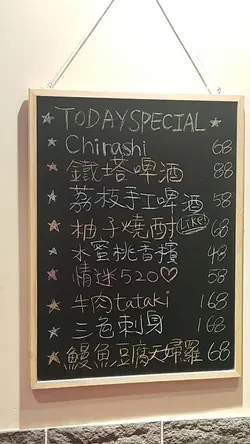 TODAY SPECIAL
Chirashi 68
鐵塔啤酒 88
荔枝手工啤酒 58
柚子燒酎 Like! 68
水蜜桃香檳 48
情迷520♡ 58
牛肉tataki 168
三色刺身 168
鰻魚豆腐天婦羅 68